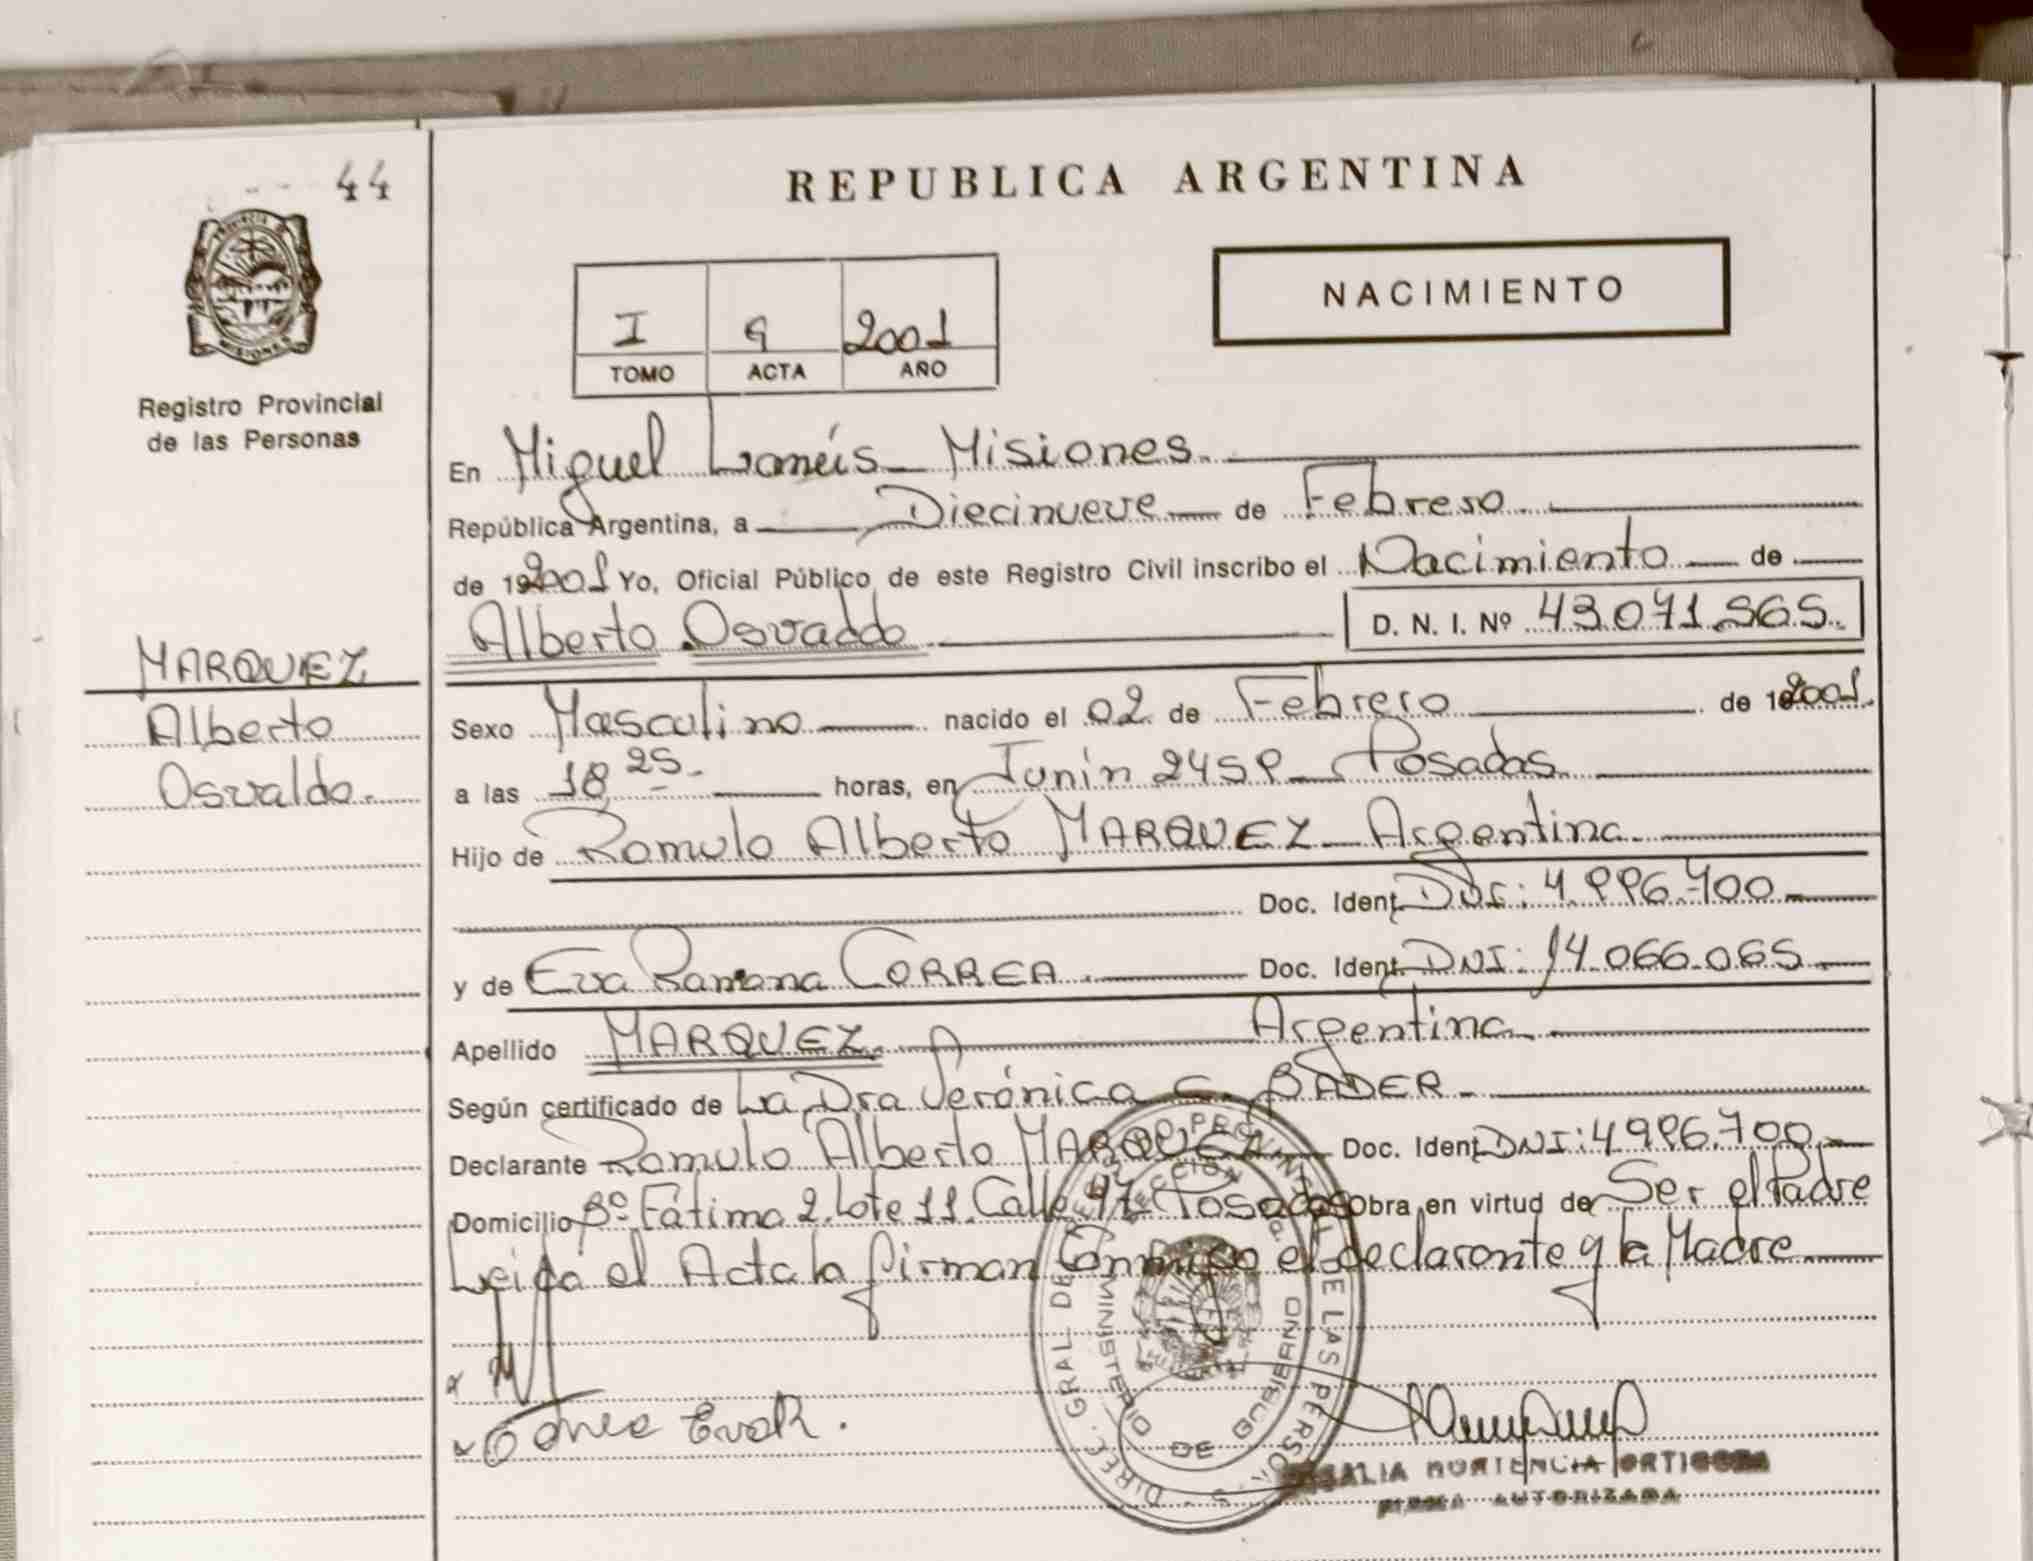 44
REPUBLICA ARGENTINA
NACIMIENTO
I 9 2001
TOMO ACTA AÑO
PROVINCIA
MISIONES
Registro Provincial
de las Personas
MARQUEZ
Alberto
Osvaldo.
En Miguel Lanús - Misiones.
República Argentina, a Diecinueve de Febrero.
de 192001 Yo, Oficial Público de este Registro Civil inscribo el Nacimiento de
Alberto Osvaldo D. N. I. Nº 43.071.565.
Sexo Masculino nacido el 02 de Febrero de 192001.
a las 18,25. horas, en Junín 2459 - Posadas.
Hijo de Romulo Alberto MARQUEZ - Argentina.
Doc. Ident. DNI: 4.996.700.
y de Eva Ramona CORREA. Doc. Ident. DNI: 14.066.065.
Apellido MARQUEZ. Argentina.
Según certificado de La Dra Verónica C. BADER.
Declarante Romulo Alberto MARQUEZ. Doc. Ident. DNI: 4.996.700.
Domicilio Bº Fátima 2. Lote 11. Calle 47. Posadas obra en virtud de Ser el Padre
Leida el Acta la firman Conmigo el declarante y la Madre
Eva R.
DIREC. GRAL DE REGISTRO PROVINCIAL DE LAS PERSONAS
MINISTERIO DE GOBIERNO
ROSALIA HORTENCIA ORTIGOZA
FIRMA AUTORIZADA